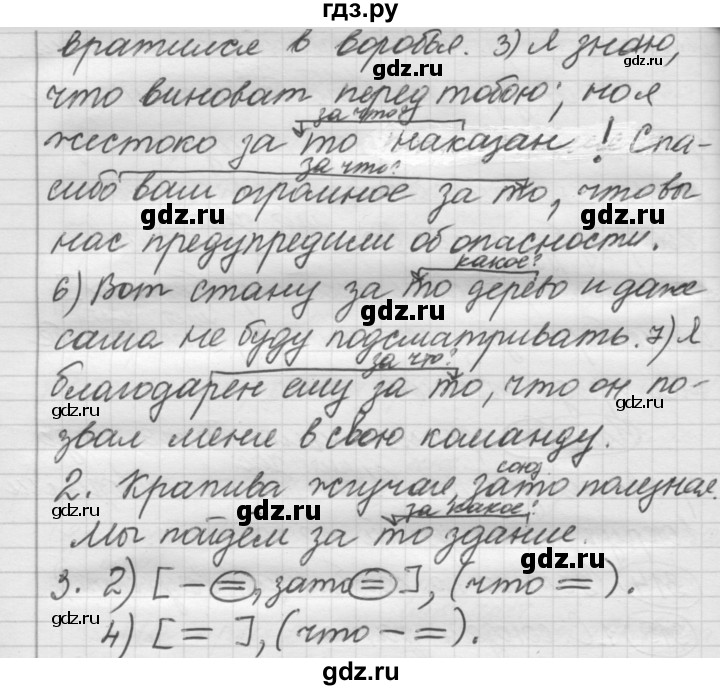 гдз.ру
вратился в воробья. 3) Я знаю,
gdz.ru gdz.ru
что виноват перед тобою; но я
за что?
жестоко за то наказан! Спа-
за что?
сибо ваш огромное за то, что вы
gdz.ru gdz.ru
нас предупредили об опасности.
какое?
6) Вот стану за то дерево и даже
gdz.ru
сама не буду подсматривать. 7) Я
за что?
благодарен ему за то, что он по-
gdz.ru gdz.ru
звал меня в свою команду.
союз
2. Крапива жгучая, зато полезная.
gdz.ru gdz.ru
за какое?
Мы пойдём за то здание.
3. 2) [ - =, зато = ], (что = ).
gdz.ru gdz.ru
4) [ = ], (что - = ).
gdz.ru